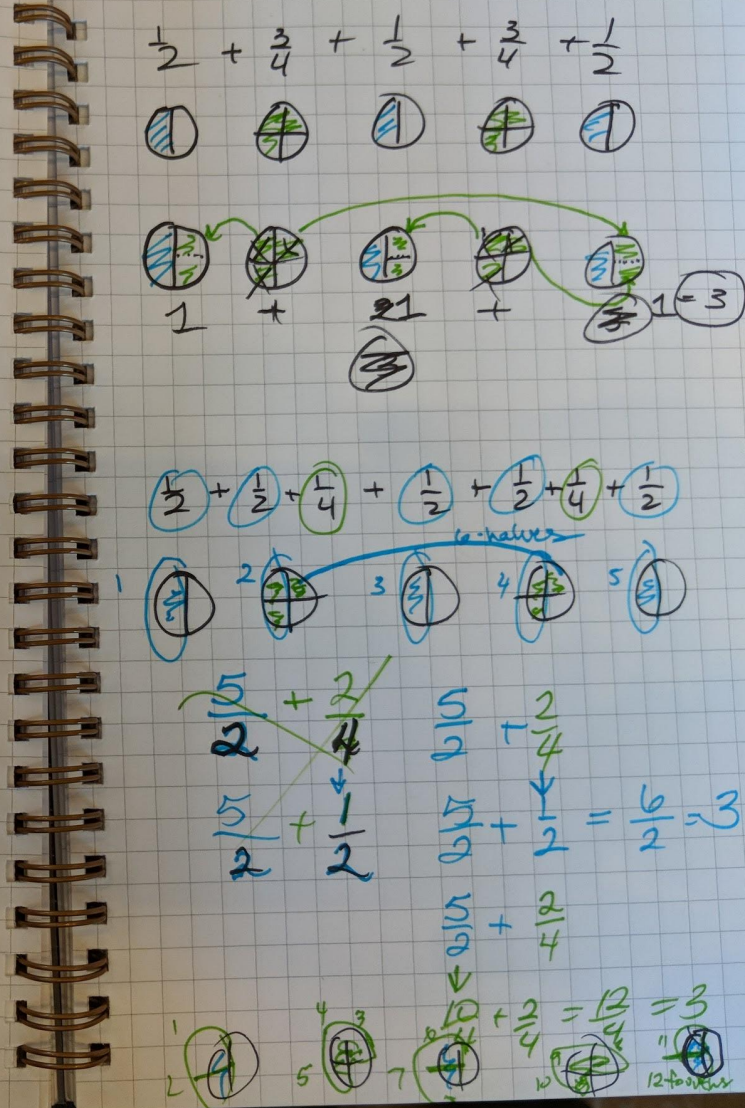 1/2 + 3/4 + 1/2 + 3/4 + 1/2
1 + 1 + 1 = 3
1/2 + 1/2 + 1/4 + 1/2 + 1/2 + 1/4 + 1/2
6-halves
1 2 3 4 5
5/2 + 2/4 5/2 + 2/4
5/2 + 1/2 5/2 + 1/2 = 6/2 = 3
5/2 + 2/4
10/4 + 2/4 = 12/4 = 3
1 4 3 11
2 5 7 10 12-fourths